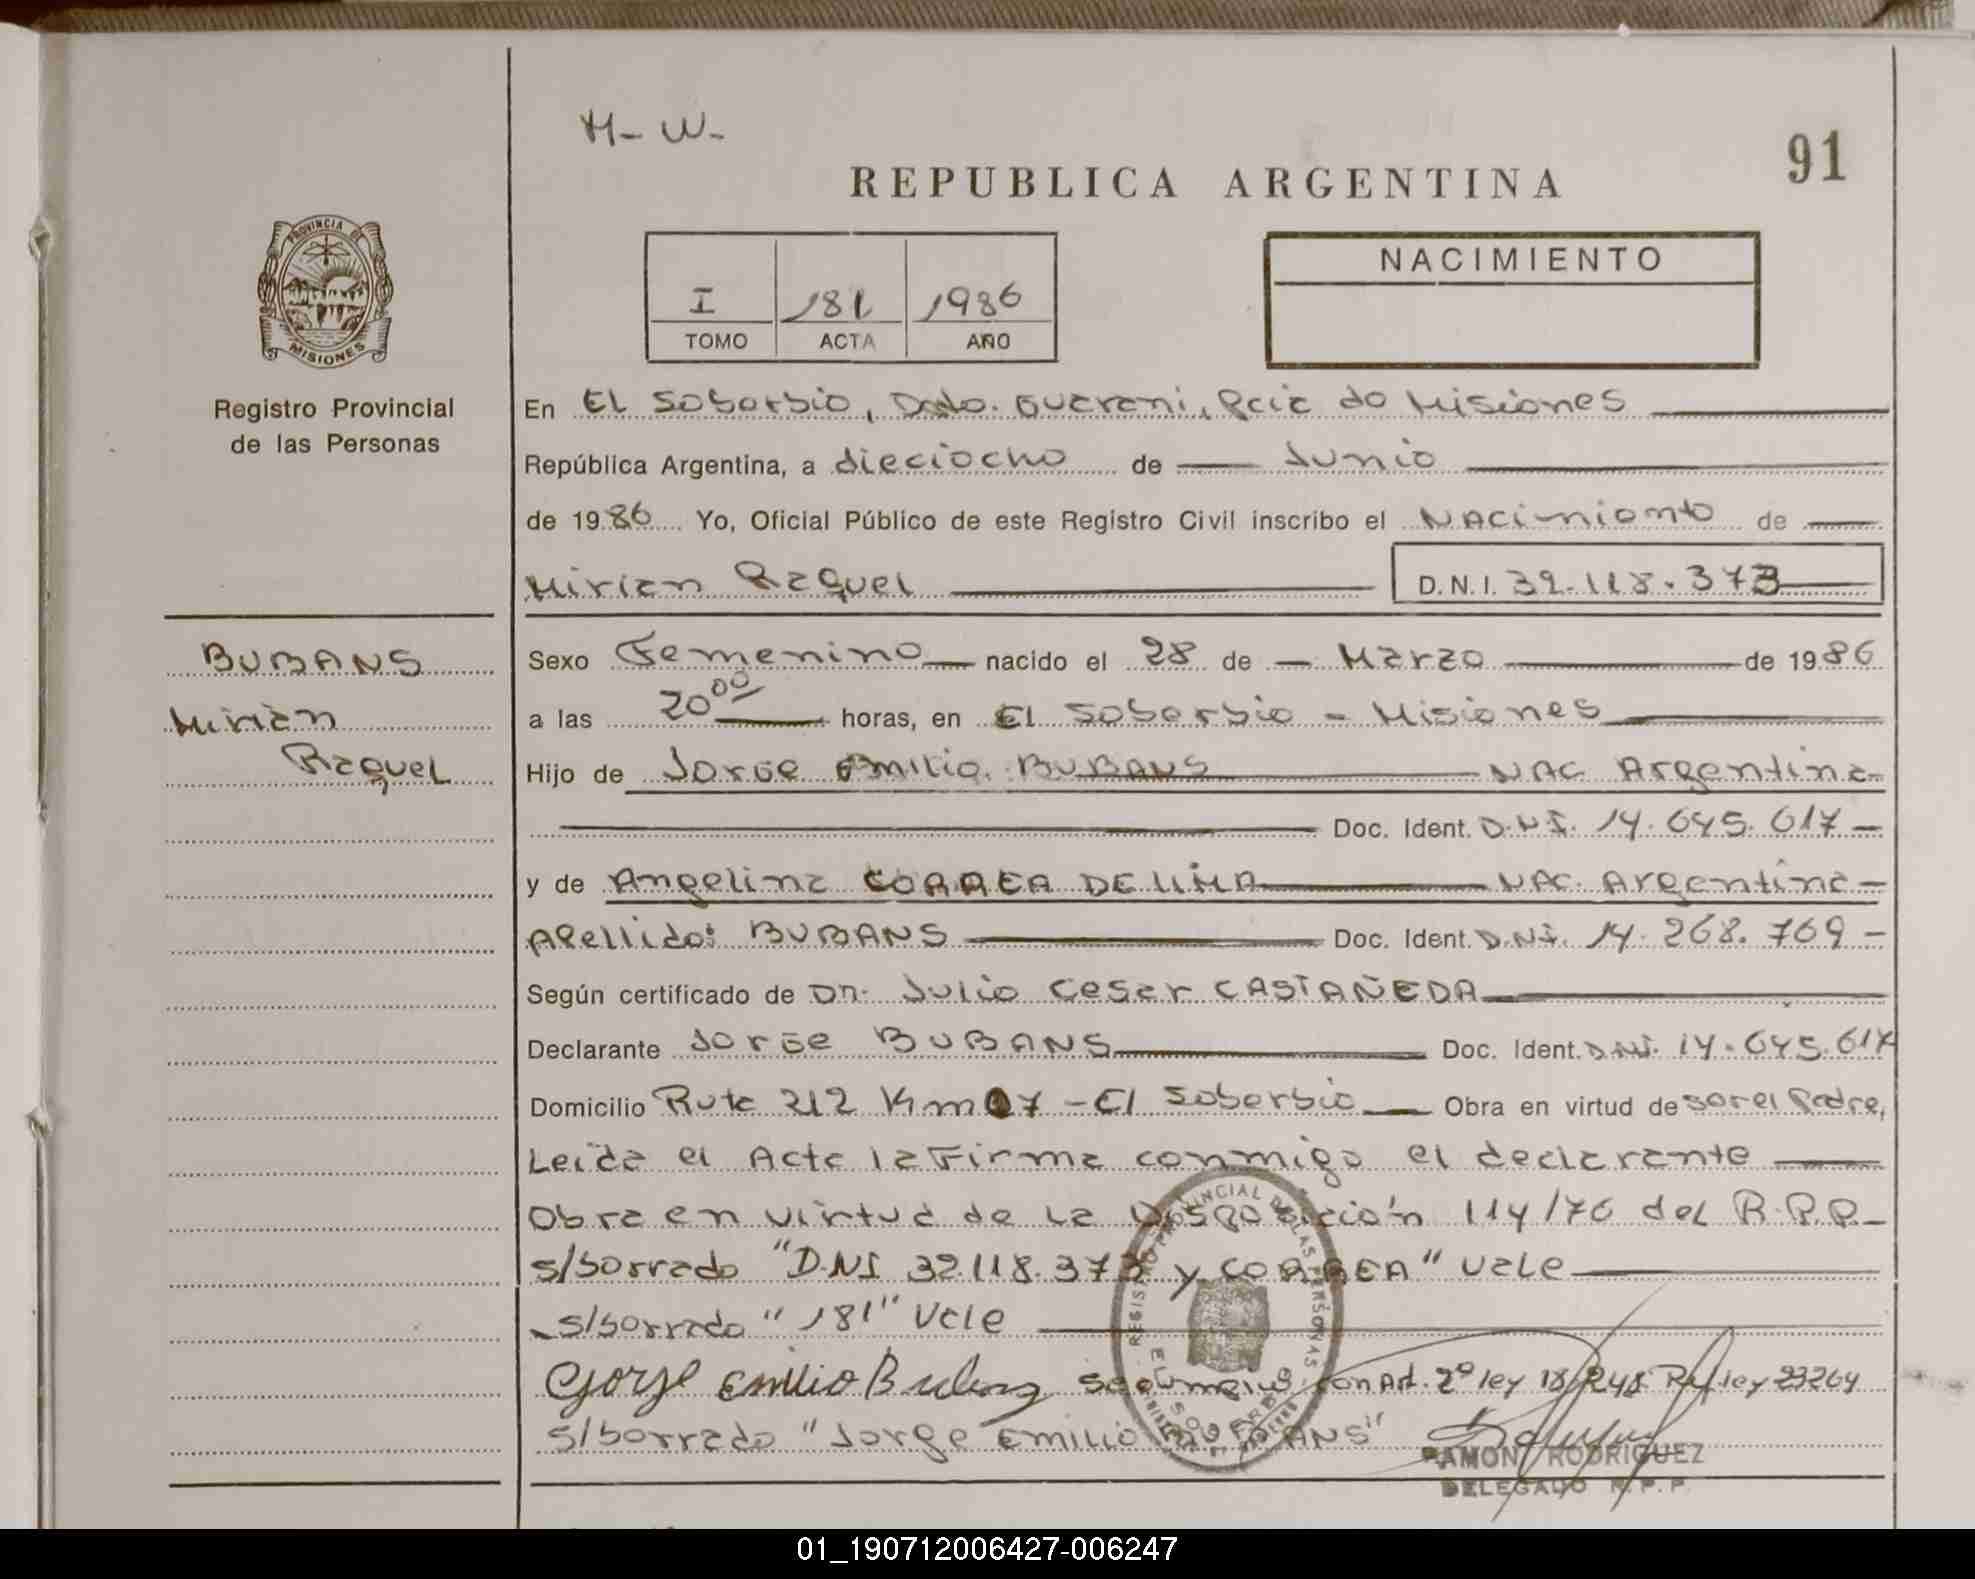 M- W-
91
REPUBLICA ARGENTINA
PROVINCIA DE
MISIONES
Registro Provincial
de las Personas
I 181 1986
TOMO ACTA AÑO
NACIMIENTO
En El Soberbio, Dpto. Guarani, Pcia de Misiones
República Argentina, a dieciocho de Junio
de 1986 Yo, Oficial Público de este Registro Civil inscribo el NACimiento de
Mirian Raquel D.N.I. 32.118.373
BUBANS
Mirian
Raquel
Sexo Femenino nacido el 28 de Marzo de 1986
a las 20⁰⁰ horas, en El Soberbio - Misiones
Hijo de Jorge Emilio BUBANS NAC Argentina
Doc. Ident. D.N.I. 14.645.617
y de Angelina CORREA DE LIMA NAC. Argentina
Apellido: BUBANS Doc. Ident. D.N.I. 14.268.769
Según certificado de Dr. Julio Cesar CASTAÑEDA
Declarante Jorge BUBANS Doc. Ident. D.N.I. 14.645.617
Domicilio Ruta 212 Km 07 - El Soberbio Obra en virtud de ser el Padre,
Leida el Acta la Firma conmigo el declarante
Obra en virtud de la Disposición 114/76 del R.P.P.
s/borrado "D.N.I 32.118.373 y CORREA" Vale
s/borrado "181" Vale
Jorge Emilio Bubans Se cumplio con Art. 2º ley 18.248 Ref ley 23264
s/borrado "Jorge Emilio BUBANS"
REGISTRO PROVINCIAL DE LAS PERSONAS
EL SOBERBIO
RAMON RODRIGUEZ
DELEGADO R.P.P.
01_190712006427-006247